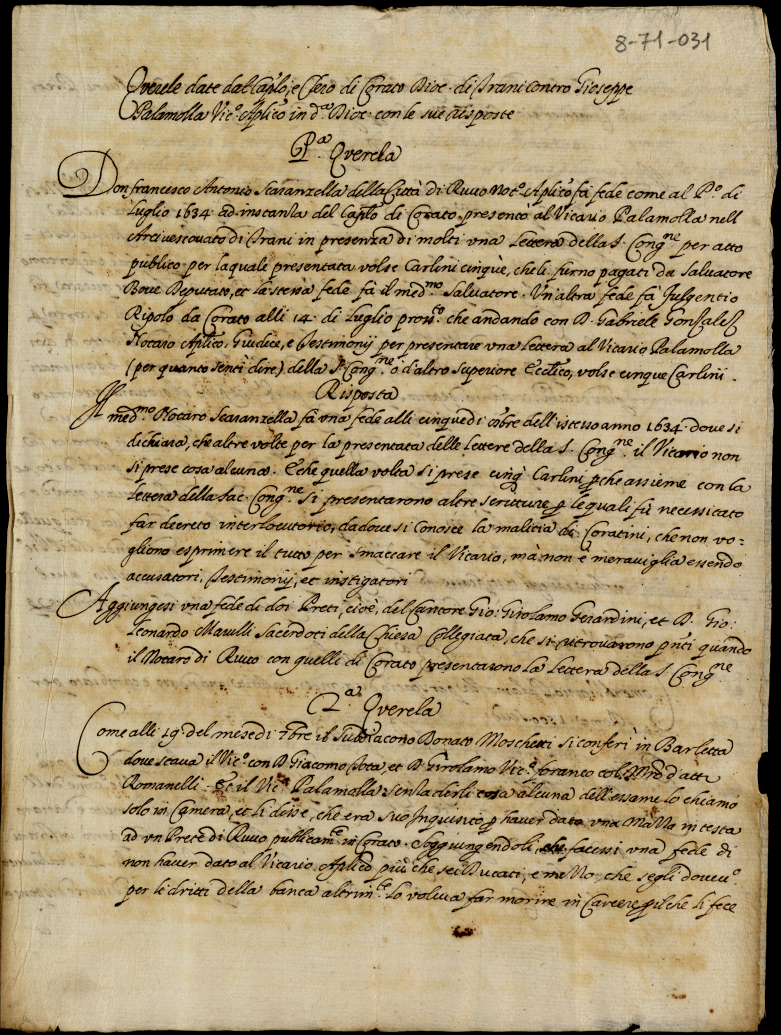 8-71-031
Querele date dal Cap.lo, e Clero di Corato Dioc. di Trani contro Gioseppe
Palamolla Vic.o Aplico in d.a Dioc. con le sue risposte
P.a Querela
Don francesco Antonio Scaranzella della Città di Ruvo Not.o Aplico fà fede come al P.o di
Luglio 1634 ad instanza del Caplo di Corato presentò al Vicario Palamolla nell
Arcivescovato di Trani in presenza di molti una Lettera della S. Cong.ne per atto
publico per la quale presentata volse Carlini cinque, che li furno pagati da Salvatore
Bove Deputato, et la stessa fede fà il med.mo Salvatore. Un'altra fede fà fulgentio
Ripolo da Corato alli 14. di Luglio pross.o che andando con D. Gabriele Gonsalez
Notaro Aplico, Giudice, e Testimonij per presentare una lettera al Vicario Palamolla
(per quanto sentì dire) della S. Cong.ne o d'altro Superiore Ecclico, volse cinque Carlini.
Risposta
Il med.mo Notaro Scaranzella fà una fede alli cinque di 8bre dell'istesso anno 1634 dove si
dichiara, che altre volte per la presentata delle lettere della S. Cong.ne il Vicario non
si prese cosa alcuna. E che quella volta si prese cinq. Carlini p che assieme con la
lettera della Sac. Cong.ne si presentarono altre scritture p le quali fù necessitato
far decreto interlocutorio, da dove si conosce la malitia de Coratini, che non vo=
gliono esprimere il tutto per smaccare il Vicario, mà non è meraviglia essendo
accusatori, Testimonij, et instigatori
Aggiungesi una fede di doi Preti, cioè, del Cantore Gio: Girolamo Gerardini, et D. Gio:
Leonardo Marulli Sacerdoti della Chiesa Collegiata, che si ritrovarono pnti quando
il Notaro di Ruvo con quelli di Corato presentarono la Lettera della S. Cong.ne
2.a Querela
Come alli 19. del mese di 7bre il Subdiacono Donato Moschetti si conferì in Barletta
dove stava il Vic.o con D. Giacomo Cotta, et D. Girolamo Vic.o foraneo col M.ro d'atti
Romanelli. Et il Vic.o Palamolla senza dirli cosa alcuna dell'essame lo chiamò
solo in Camera, et li disse, che era suo Inquisito p haver dato una Mazza in testa
ad un Prete di Ruvo publicam.te in Corato. Soggiungendoli, che facessi una fede di
non haver dato al Vicario Aplico più che sei Ducati, e mezzo, che segli dovev.o
per li dritti della banca altrim.te lo voleva far morire in Carcere p il che li fece